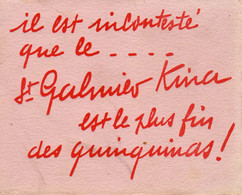 il est incontesté
que le . . . .
St Galmier Kina
est le plus fin
des quinquinas !